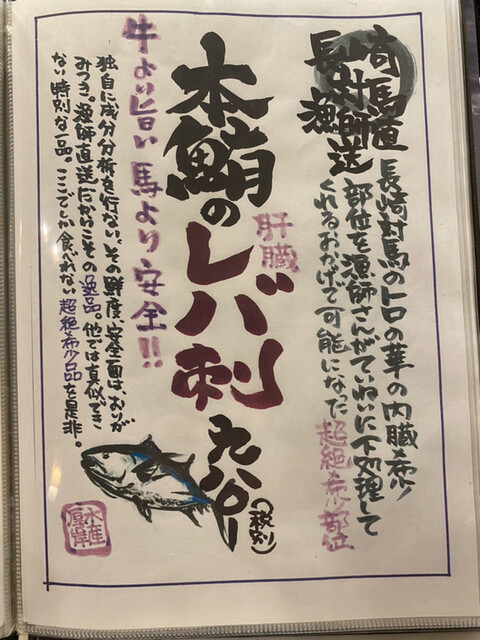 長崎対馬直
漁師送
長崎対馬のトロの華の内臓希少
部位を漁師さんがていねいに下処理して
くれるおかげで可能になった超絶希少部位
肝臓
本鮪のレバ刺 九八〇ー(税別)
牛より旨い馬より安全!!
独自に成分分析を行ない、その鮮度、安全面は、おりが
みつき。漁師直送だからこその逸品。他では真似でき
ない特別な一品。ここでしか食べれない超絶希少品を是非。